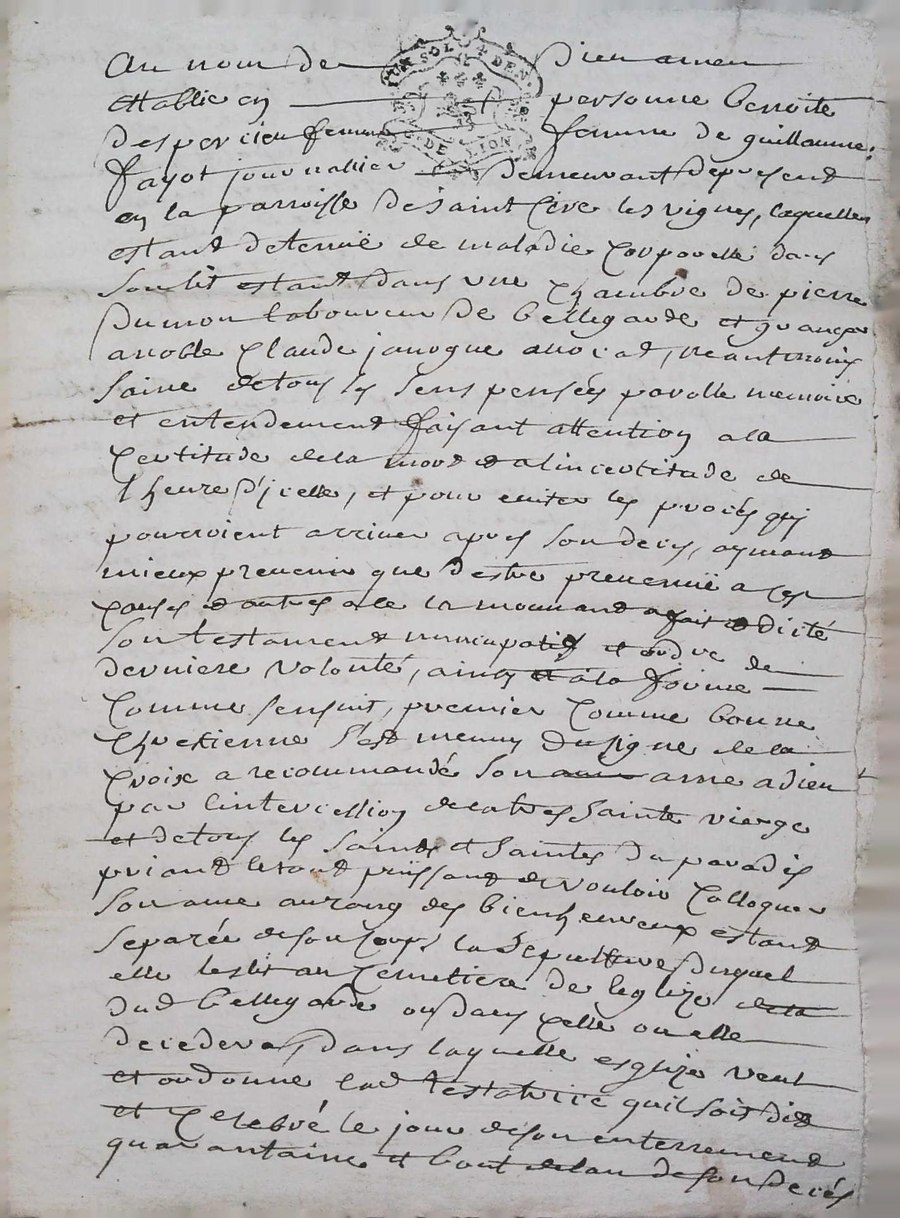 Au nom de Dieu amen
DEUX SOLS DEN.
G. DE LION
establie en personne benoite
desperrieu femme femme de guillaume
fayot journallier demeurant depresent
en la parroisse de saint Cire les vignes, laquelle
estant detenüe de maladie Corporelle dans
son lit estant dans une Chambre de pierre
Dumon laboureur de bellegarde et granger
a noble Claude janogue avocat, neantmoins
saine de tous ses sens pensées parolle memoire
et entendement faisant attention a la
Certitude de la mort et a lincertitude de
lheure D'jcelle, et pour eviter les procés qui
pourroient arriver apres son decés, aymant
mieux prevenir que destre prevenüe a ces
causes et autres a ce la mouvant a fait et dicté
son testament nuncupatif et ordre de
derniere volonté, ainsy et a la forme
Comme sensuit, premier Comme bonne
Chretienne s'est munny du signe de la
Croix a recommandé son ame a dieu
par lintercession de la tres sainte vierge
et de tous les saints et saintes du paradis
priant le tout puissant de vouloir Colloquer
son ame au rang des bienheureux estant
separée de son Corps la sepulture duquel
elle leslit au Cemetiere de leglize de la
dud bellegarde ou dans Celle ou elle
decedera, dans laquelle esglize veut
et ordonne lad testatrice quil soit dit
et Celebré le jour de son enterrement
quarantaine et bout de lan de son decés